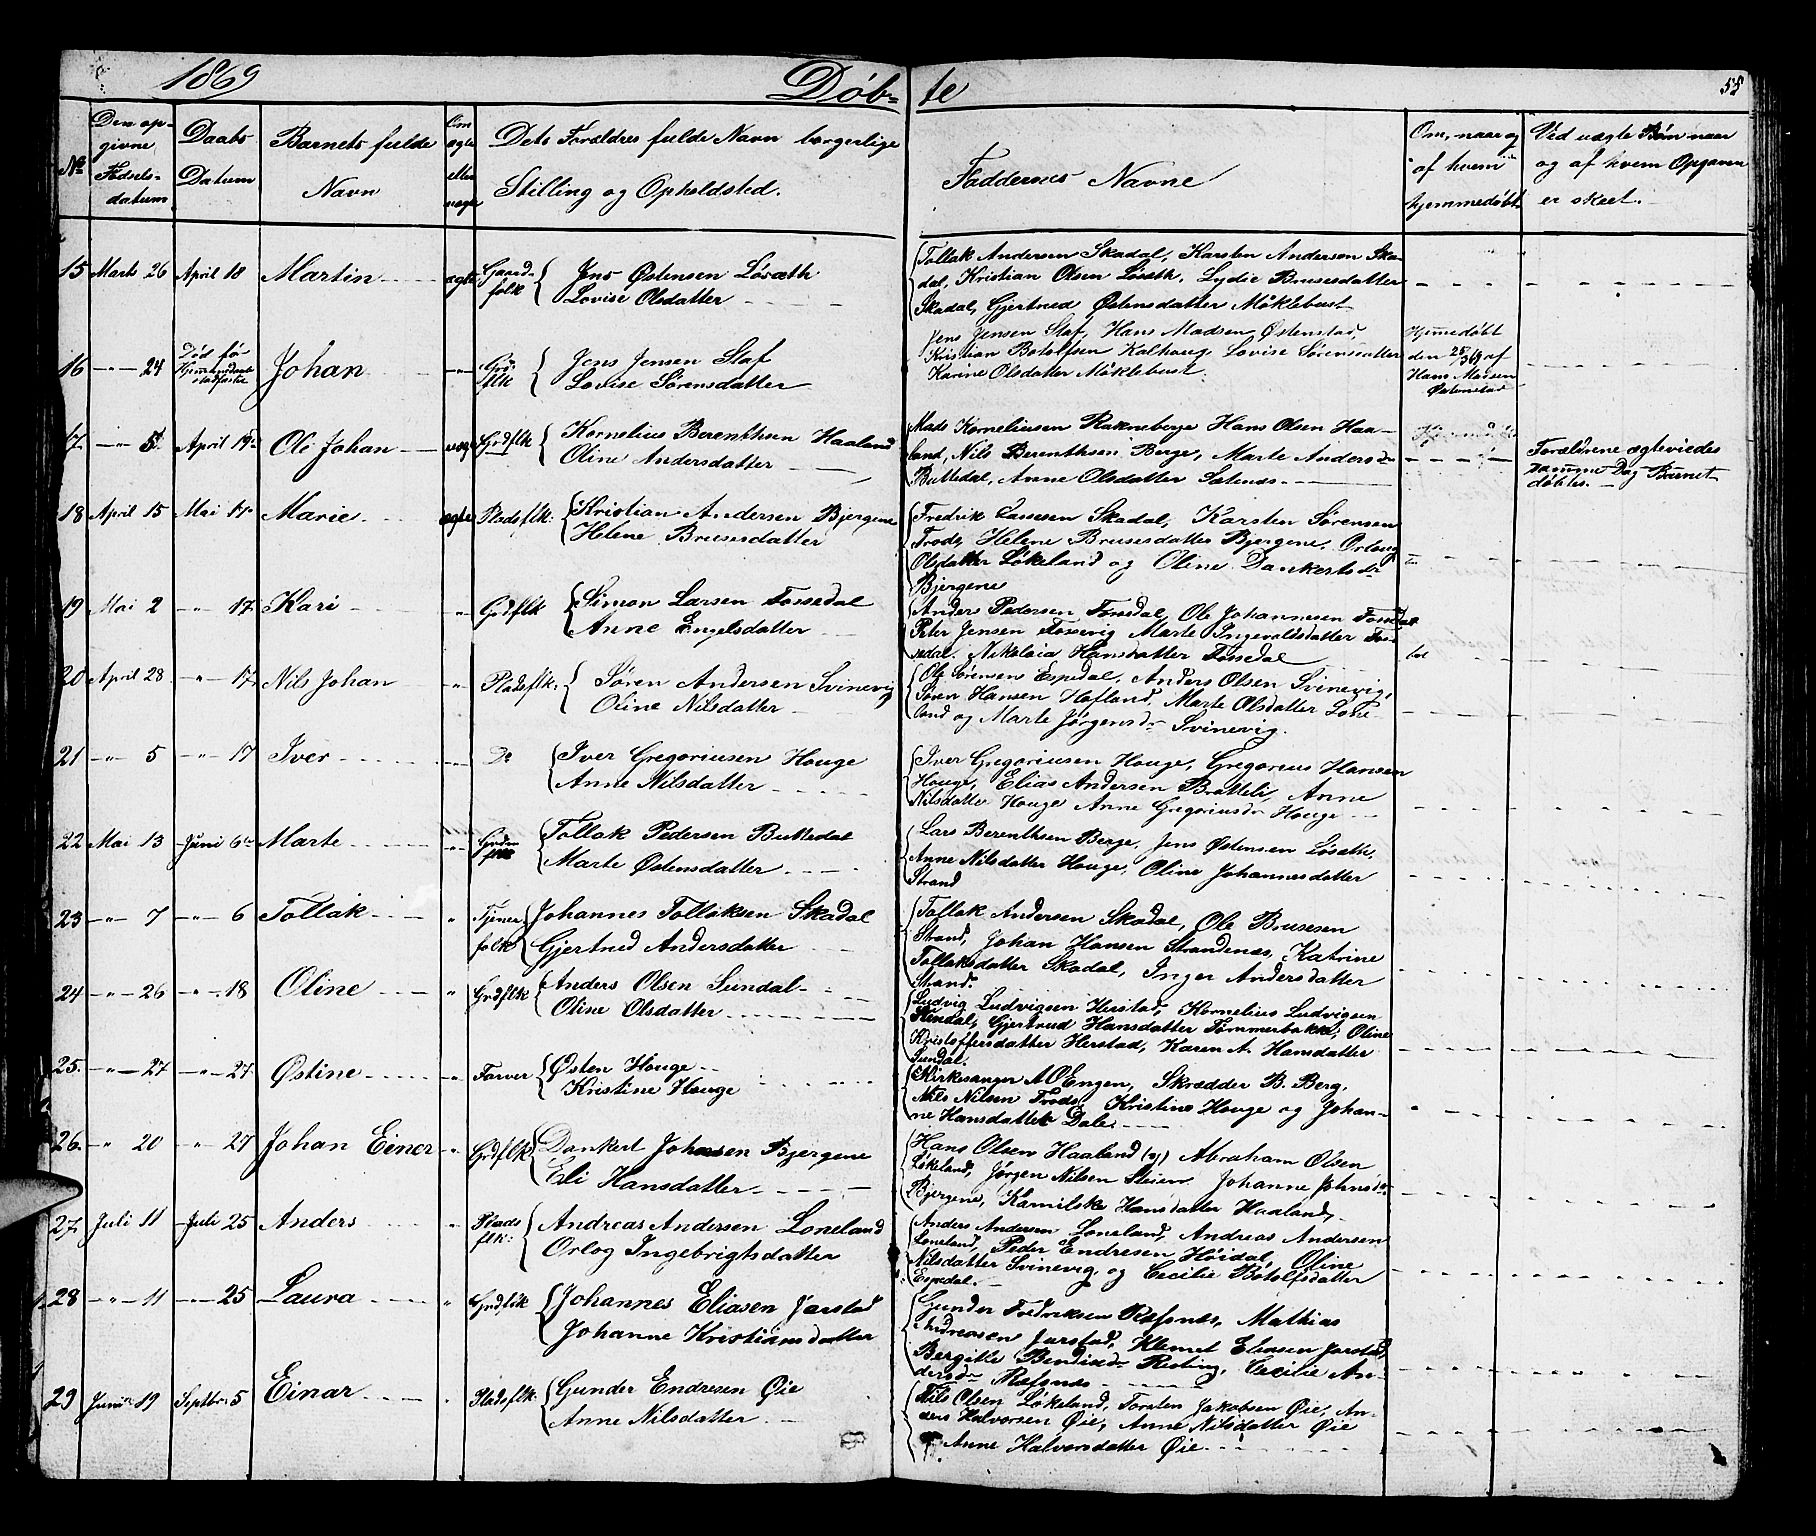 1869 Døb- te 55
No
Den op-
givne
Fødsels-
datum
Daabs
Datum
Barnets fulde
Navn
Om
ægte
eller
uægte
Dets Forældres fulde Navn borgerlige
Stilling og Opholdsted.
Faddernes Navne
Om, naar og
af hvem
hjemmedøbt.
Ved uægte Børn naar
og af hvem Opgaven
er skeet.
15 Marts 26 April 18 Martin ægte Gaard-
folk
Jens Østensen Løsæth
Lovise Olsdatter
Tollak Andersen Skadal, Karsten Andersen Ska-
dal, Kristian Olsen Løseth, Lydie Brusesdatter
Skadal, Gjertrud Østensdatter Møklebust
16 -"- 24 Død før
stadfæstet Johan -"- Grd
flk
Jens Jensen Staf
Lovise Sørensdatter
Jens Jensen Staf, Hans Madsen Østenstad,
Kristian Botolfsen Kalhaug, Lovise Sørensdatter
Karine Olsdatter Møklebust.
Hjemmedøbt
den 25/3 69 af
Hans Madsen
Østenstad
17 -"- 5 April 19 Ole Johan uægte Grdflk
Kornelius Berenthsen Haaland
Oline Andersdatter
Mads Korneliusen Rakneberge Hans Olsen Haa-
land, Nils Berenthsen Berge, Marte Andersdr
Buttedal, Anne Olsdatter Sætenæs.
Forældrene ægteviedes
samme Dag Barnet
døbtes.
18 April 15 Mai 17 Marie ægte Pladsflk:
Kristian Andersen Bjergene
Helene Brusesdatter
Fredrik Lassesen Skadal, Karsten Sørensen
Trods, Helene Brusesdatter Bjergene, Orloug
Olsdatter Løkeland og Oline Dankertsdr
Bjergene
19 Mai 2 -"- 17 Kari " Grdflk
Simon Larsen Fossedal
Anne Engelsdatter
Anders Pedersen Fossedal, Ole Johannesen Fossdal
Peter Jensen Fossevig Marte Ingevaldsdatter Fos-
sedal. Nikolaia Hansdatter Fossedal
20 April 28 -"- 17 Nils Johan " Pladsflk:
Søren Andersen Svinevig
Oline Nilsdatter
Ole Sørensen Espedal, Anders Olsen Svinevig,
Søren Hansen Hofland, Marte Olsdatter Lone-
land og Marte Jørgensdr Svinevig.
21 -"- 5 -"- 17 Iver -"- Do
Iver Gregoriusen Houge
Anne Nilsdatter
Iver Gregoriusen Houge, Gregorius Hansen
Houge, Elias Andersen Bratteli, Anne
Nilsdatter Houge Anne Gregoriusdr Houge
22 Mai 13 Juni 6 Marte -"- Grden
flk
Tollak Pedersen Buttedal
Marte Østensdatter
Lars Berenthsen Berge, Jens Østensen Løseth,
Anne Nilsdatter Houge, Oline Johannesdatter
Strand
23 -"- 7 -"- 6 Tollak " Tjener
folk
Johannes Tollaksen Skadal
Gjertrud Andersdatter
Tollak Andersen Skadal, Ole Brusesen
Strand, Johan Hansen Strandenæs, Katrine
Tollaksdatter Skadal, Inger Andersdatter
Strand.
24 -"- 26 -"- 18 Oline " Grdflk
Anders Olsen Sundal
Oline Olsdatter
Ludvig Ludvigsen Herstad, Kornelius Ludvigsen
Stendal, Gjertrud Hansdatter Tømmerbakke, Oline
Kristoffersdatter Herstad, Karen A. Hansdatter
Sundal
25. -"- 27 -"- 27 Østine " Farver
Østen Houge
Kristine Houge
Kirkesanger A O Engen, Skrædder B. Berg,
Nils Nilsen Trods, Kristine Houge og Johan-
ne Hansdatter Dale
26. " 20 -"- 27 Johan Einer " Grdflk
Dankert Johnsen Bjergene
Eli Hansdatter
Hans Olsen Haaland Abraham Olsen
Løkeland, Jørgen Nilsen Steien Johanne Johnsdr
Bjergene, Kamilske Hansdatter Haaland,
27. Juli 11 Juli 25 Anders " Plads
flk:
Andreas Andersen Loneland
Orlog Ingebrigtsdatter
Anders Andersen Loneland, Andreas Andersen
Loneland, Peder Endresen Høidal, Oline
Nilsdatter Svinevig, og Cecilie Botolfsdatter
Espedal.
28 -"- 11 -"- 25 Laura " Grdflk
Johannes Eliasen Jarstad
Johanne Kristiansdatter
Gunder Fredriksen Refsnes, Mathias
Andreasen Jarstad, Klemet Eliasen Jarstad,
Bergitte Bendiksdr Risting, Cecilie An-
dersdr Refsnes
29 Juni 19 Septbr 5 Einar " Pladsflk:
Gunder Endresen Øie
Anne Nilsdatter
Nils Olsen Løkeland, Torsten Jakobsen Øie, An-
ders Halvorsen Øie, Anne Nilsdatter Øie
Anne Halvorsdatter Øie